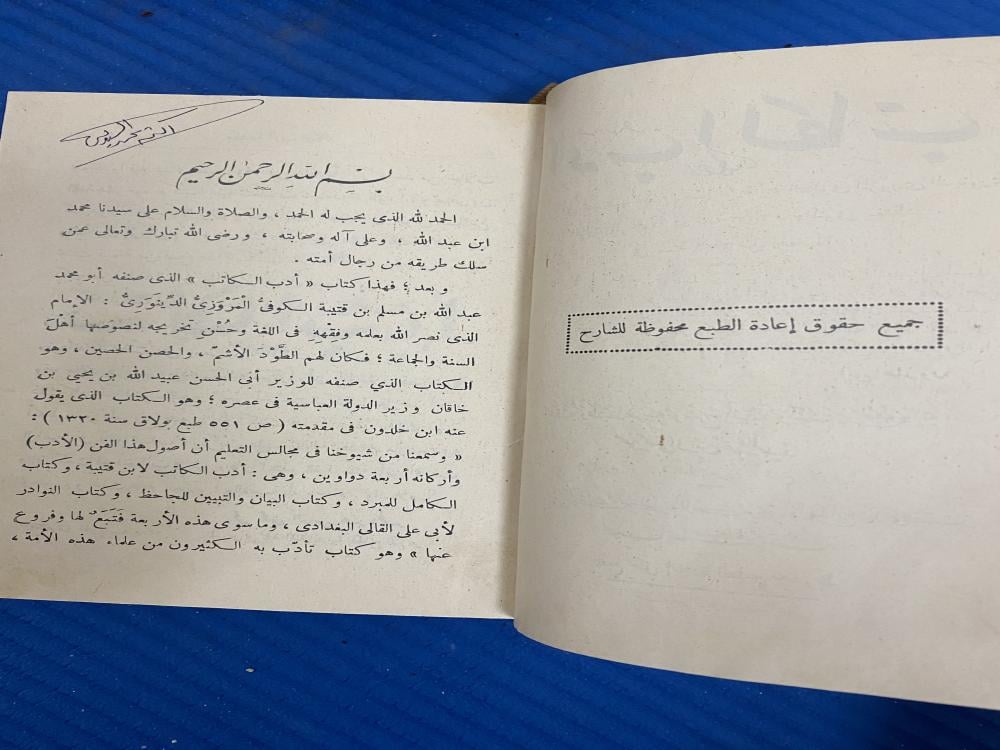 جميع حقوق إعادة الطبع محفوظة للشارح
بسم الله الرحمن الرحيم
الحمد لله الذى يجب له الحمد ، والصلاة والسلام على سيدنا محمد
ابن عبد الله ، وعلى آله وصحابته ، ورضى الله تبارك وتعالى عمن
سلك طريقه من رجال أمته .
وبعد ؛ فهذا كتاب « أدب الكاتب » الذى صنفه أبو محمد
عبد الله بن مسلم بن قتيبة الكوفىُّ الْمَرْوَزِىُّ الدِّينَوَرِىُّ : الإمام
الذى نصر الله بعلمه وفِقْههِ فى اللغة وحُسْنِ تخريجه لنصوصها أهْلَ
السنة والجماعة ؛ فكان لهم الطَّوْدَ الأشمَّ ، والحصن الحصين ، وهو
الكتاب الذي صنفه للوزير أبى الحسن عبيد الله بن يحيى بن
خاقان وزير الدولة العباسية فى عصره ؛ وهو الكتاب الذى يقول
عنه ابن خلدون فى مقدمته ( ص ٥٥١ طبع بولاق سنة ١٣٢٠ ) :
« وسمعنا من شيوخنا فى مجالس التعليم أن أصول هذا الفن (الأدب)
وأركانه أربعة دواوين ، وهى : أدب الكاتب لابن قتيبة ، وكتاب
الكامل للمبرد ، وكتاب البيان والتبيين للجاحظ ، وكتاب النوادر
لأبى على القالى البغدادى ، وما سوى هذه الأربعة فَتَبَعٌ لها وفروع
عنها » وهو كتاب تأدّب به الكثيرون من علماء هذه الأمة ،